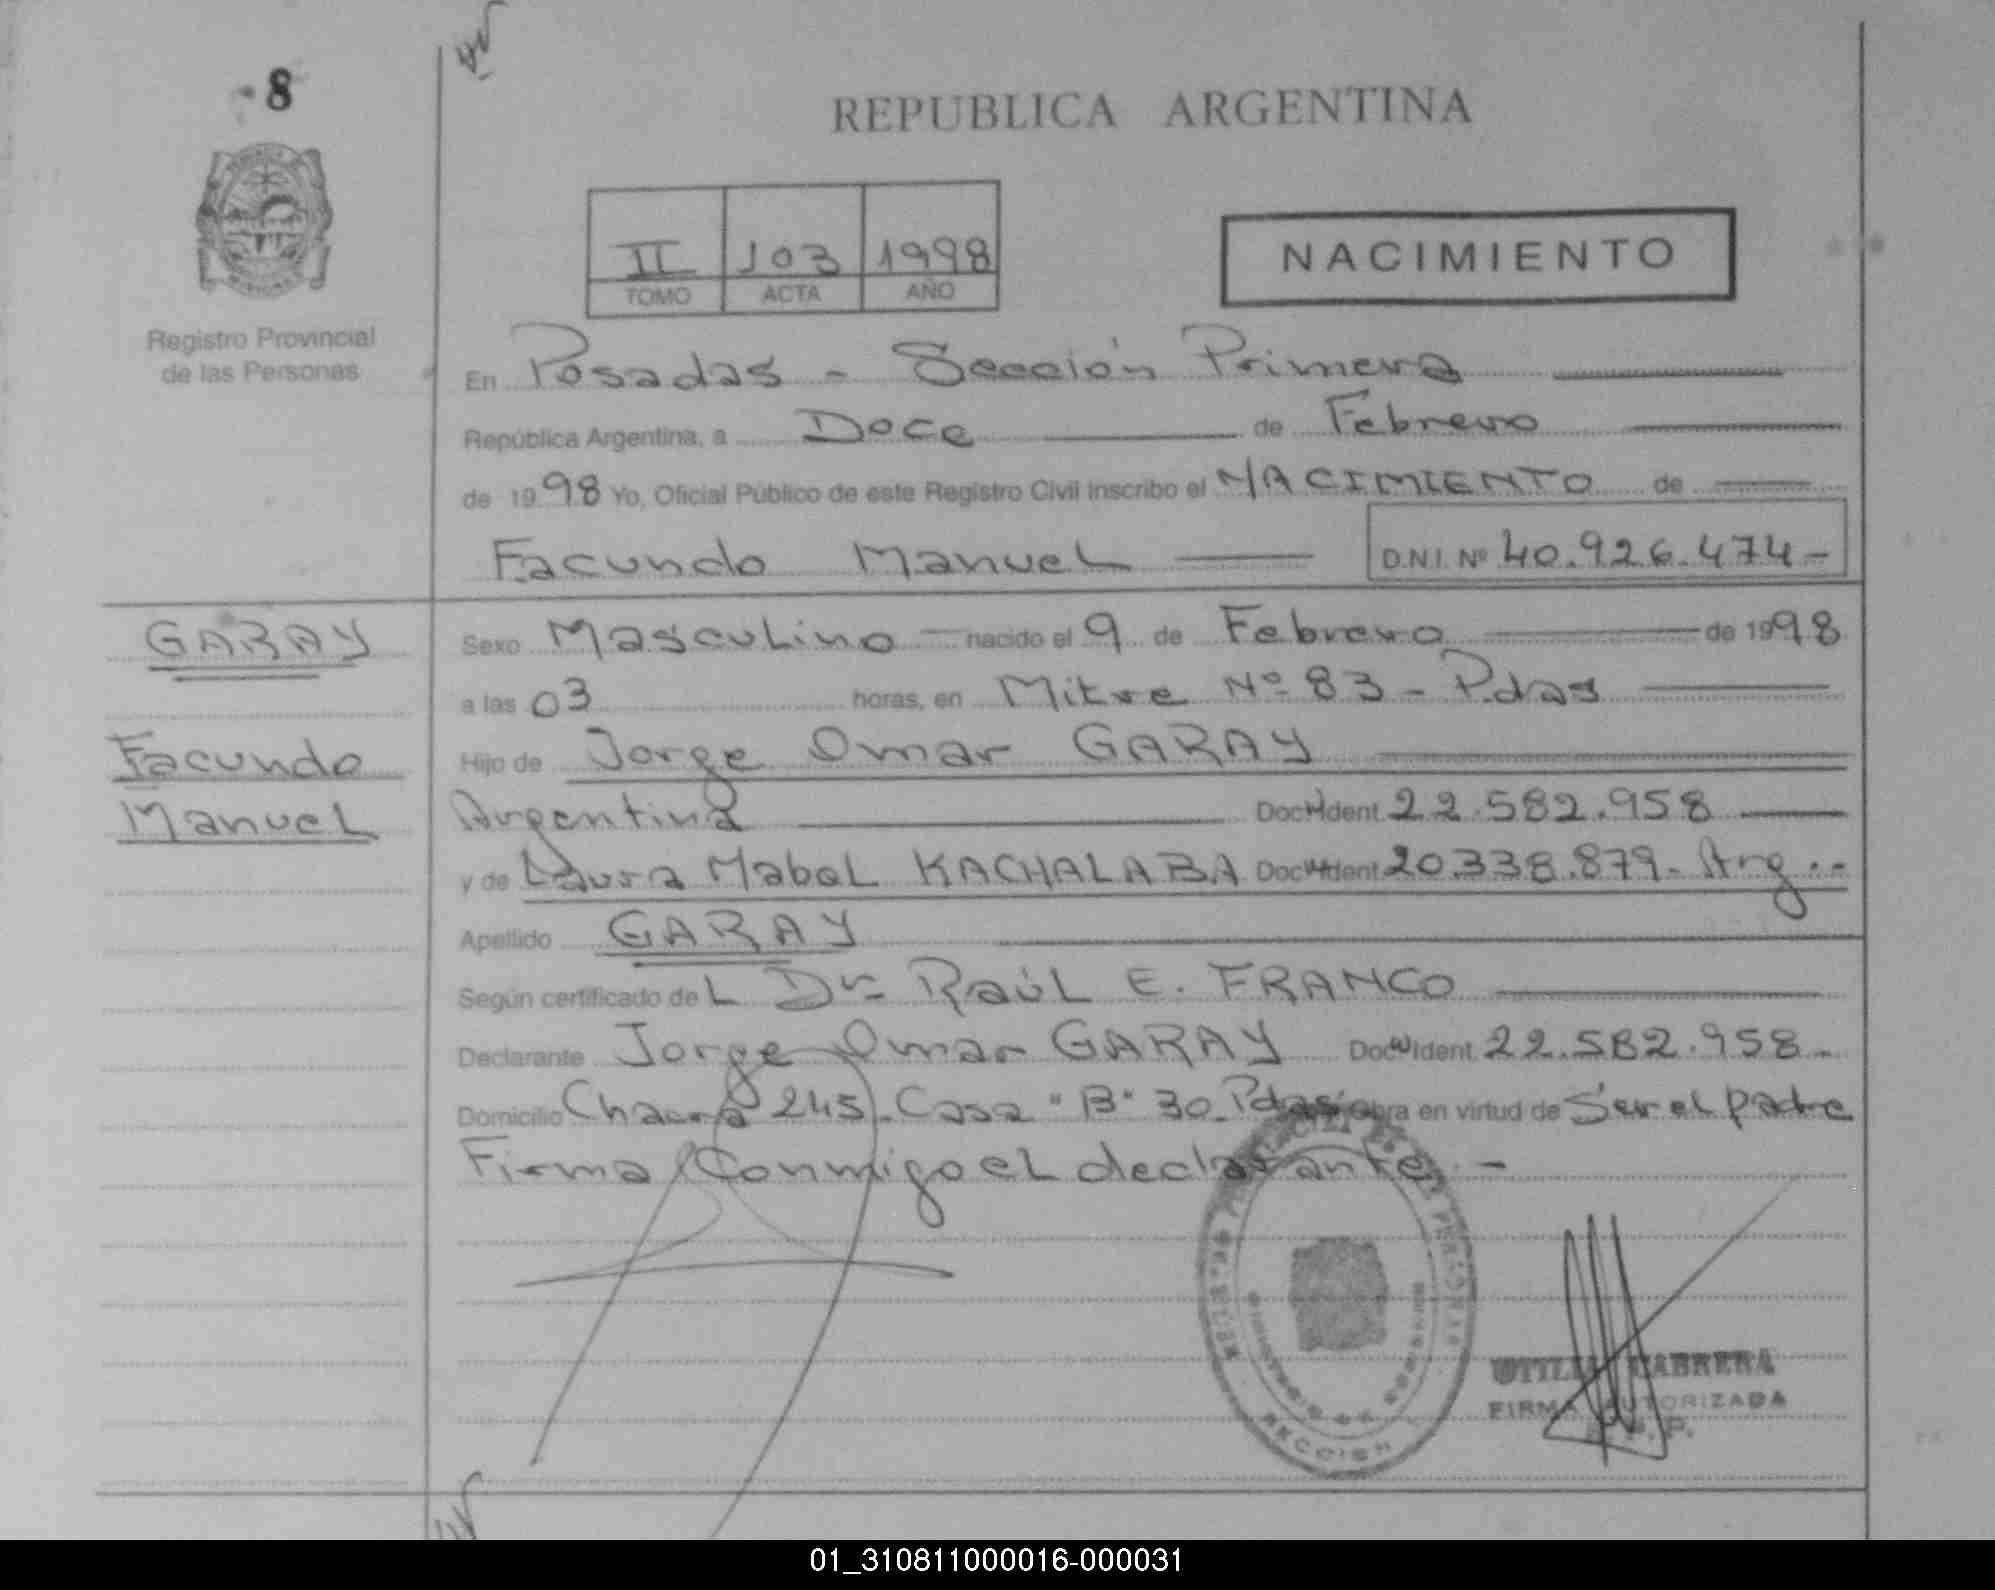 8
REPUBLICA ARGENTINA
II 103 1998
TOMO ACTA AÑO
NACIMIENTO
Registro Provincial
de las Personas
En Posadas - Sección Primera
República Argentina, a Doce de Febrero
de 1998 Yo, Oficial Público de este Registro Civil inscribo el NACIMIENTO de
Facundo Manuel D.N.I. Nº 40.926.474-
GARAY
Facundo
Manuel
Sexo Masculino nacido el 9 de Febrero de 1998
a las 03 horas, en Mitre Nº 83 - Pdas
Hijo de Jorge Omar GARAY
Argentina Doc. Ident. 22.582.958
y de Laura Mabel KACHALABA Doc. Ident. 20.338.879- Arg.-
Apellido GARAY
Según certificado del Dr. Raúl E. FRANCO
Declarante Jorge Omar GARAY Doc. Ident. 22.582.958-
Domicilio Chacra 245. Casa "B" 30. Pdas obra en virtud de Ser el padre
Firma Conmigo el declarante.-
SECCION
CABRERA
FIRMA AUTORIZADA
01_310811000016-000031